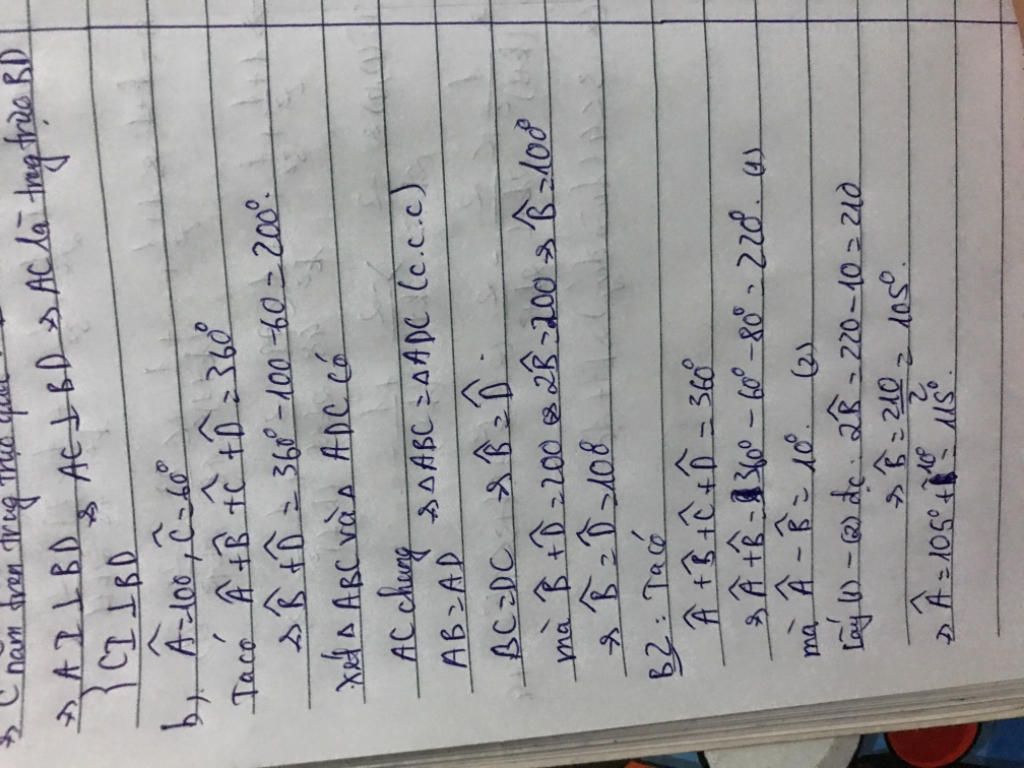 ⇒ C nằm trên trung trực
⇒ AI ⊥ BD ⇒ AC ⊥ BD ⇒ AC là trung trực BD
{ CI ⊥ BD
b, Â=100, Ĉ=60°
Ta có Â+B̂+Ĉ+D̂=360°
⇒ B̂+D̂=360°-100-60=200°.
Xét Δ ABC và Δ ADC có
AC chung
AB=AD ⇒ Δ ABC = Δ ADC (c.c.c)
BC=DC ⇒ B̂=D̂.
mà B̂+D̂=200 ⇔ 2B̂=200 ⇒ B̂=100°
⇒ B̂=D̂=100
B2: Ta có
Â+B̂+Ĉ+D̂=360°
⇒ Â+B̂=360°-60°-80°=220°. (1)
mà Â-B̂=10°. (2)
Lấy (1)-(2) đc: 2B̂=220-10=210
⇒ B̂=210/2=105°.
⇒ Â=105°+10=115°.